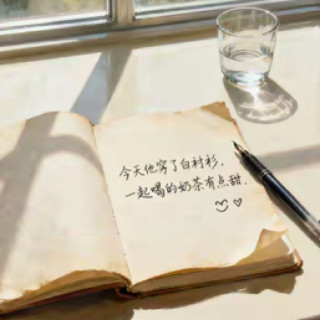 今天他穿了白衬衫，
一起喝的奶茶有点甜.